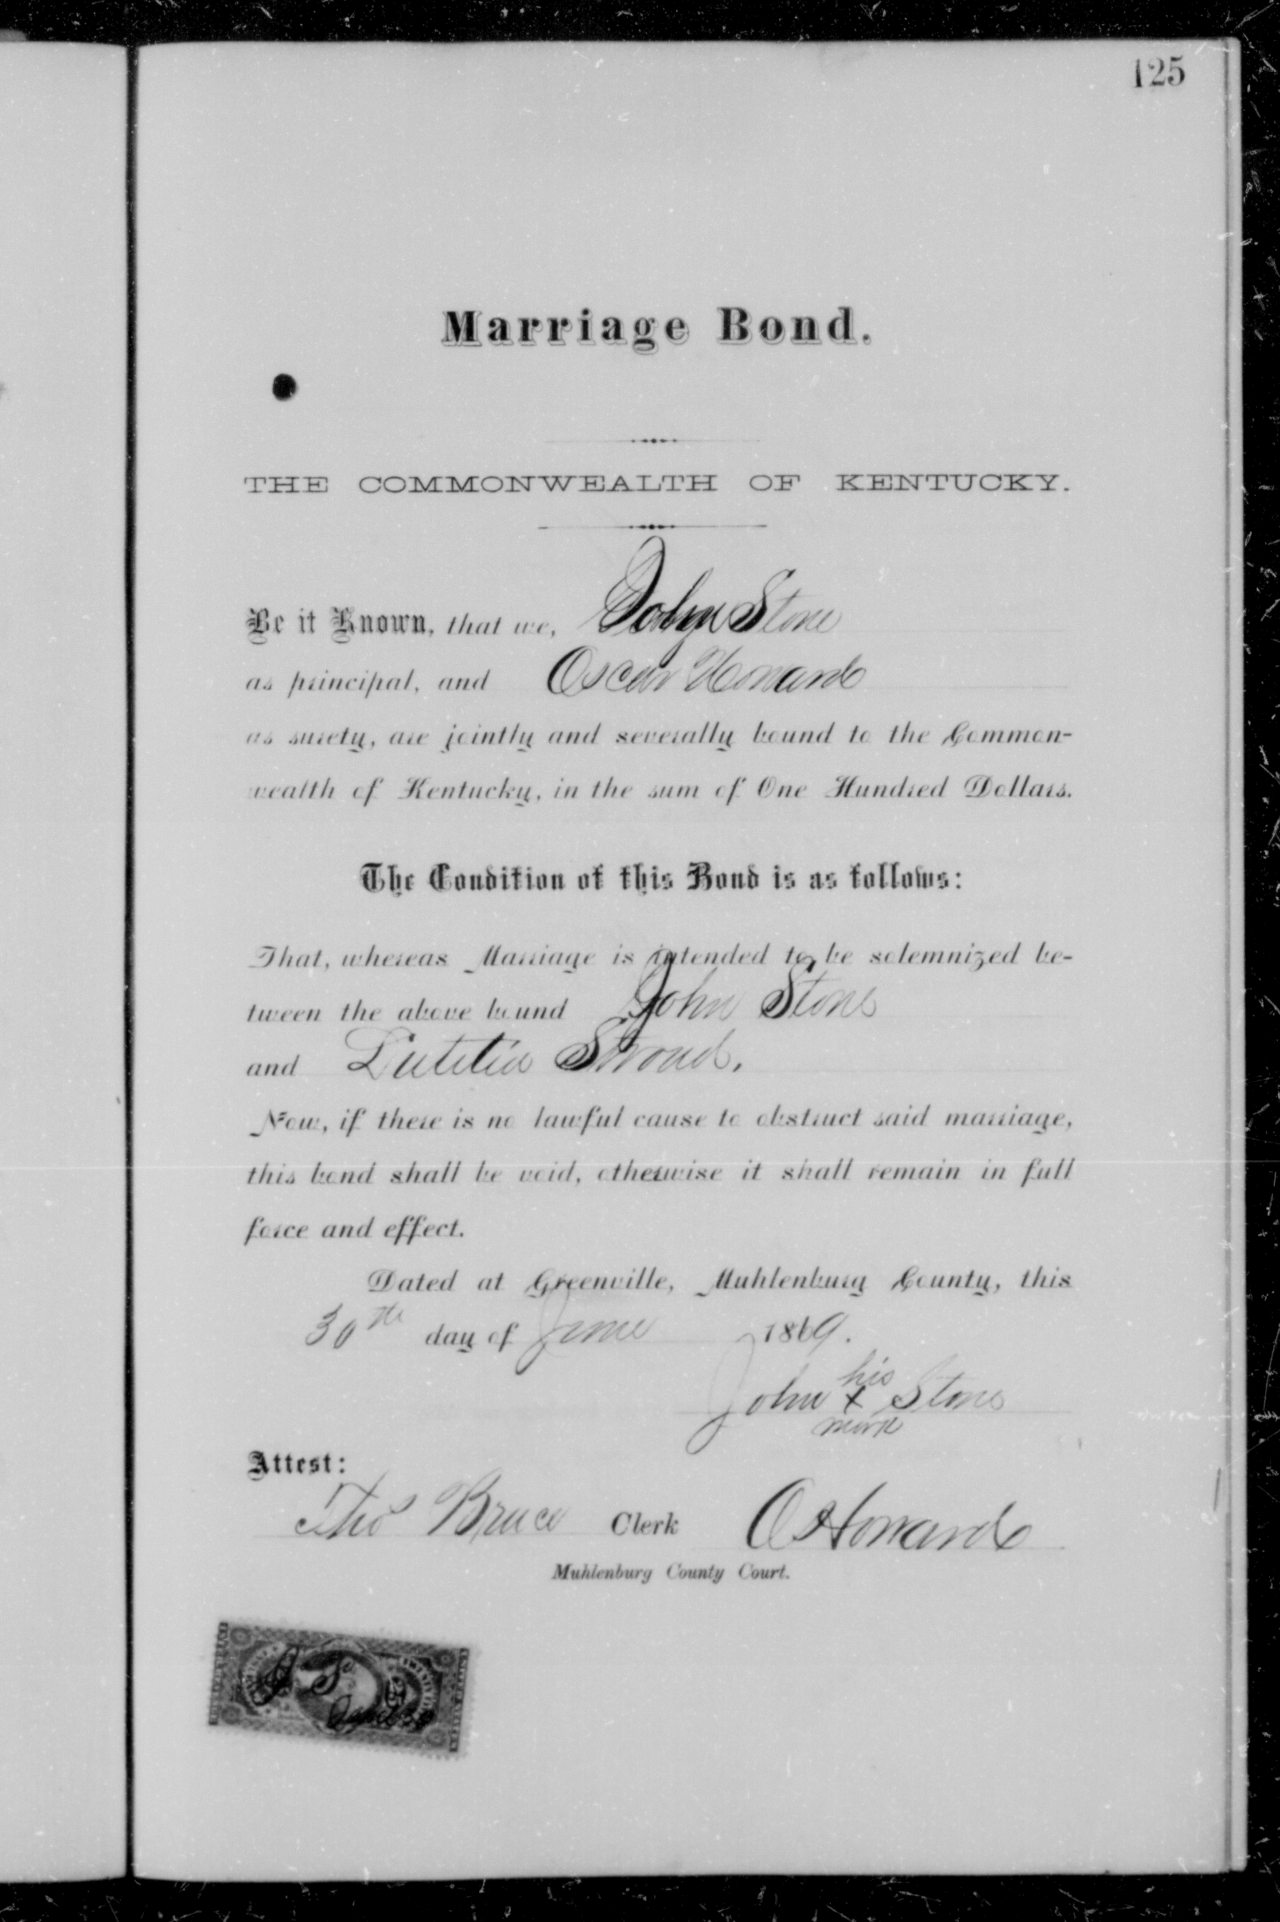 125
Marriage Bond.
THE COMMONWEALTH OF KENTUCKY.
Be it Known, that we, John Stone
as principal, and Oscar Howard
as surety, are jointly and severally bound to the Common-
wealth of Kentucky, in the sum of One Hundred Dollars.
The Condition of this Bond is as follows:
That, whereas Marriage is intended to be solemnized be-
tween the above bound John Stone
and Lutitia Stroud.
Now, if there is no lawful cause to obstruct said marriage,
this bond shall be void, otherwise it shall remain in full
force and effect.
Dated at Greenville, Muhlenburg County, this
30th day of June 1869.
his
John x Stone
mark
Attest:
Thos Bruce Clerk O Howard
Muhlenburg County Court.